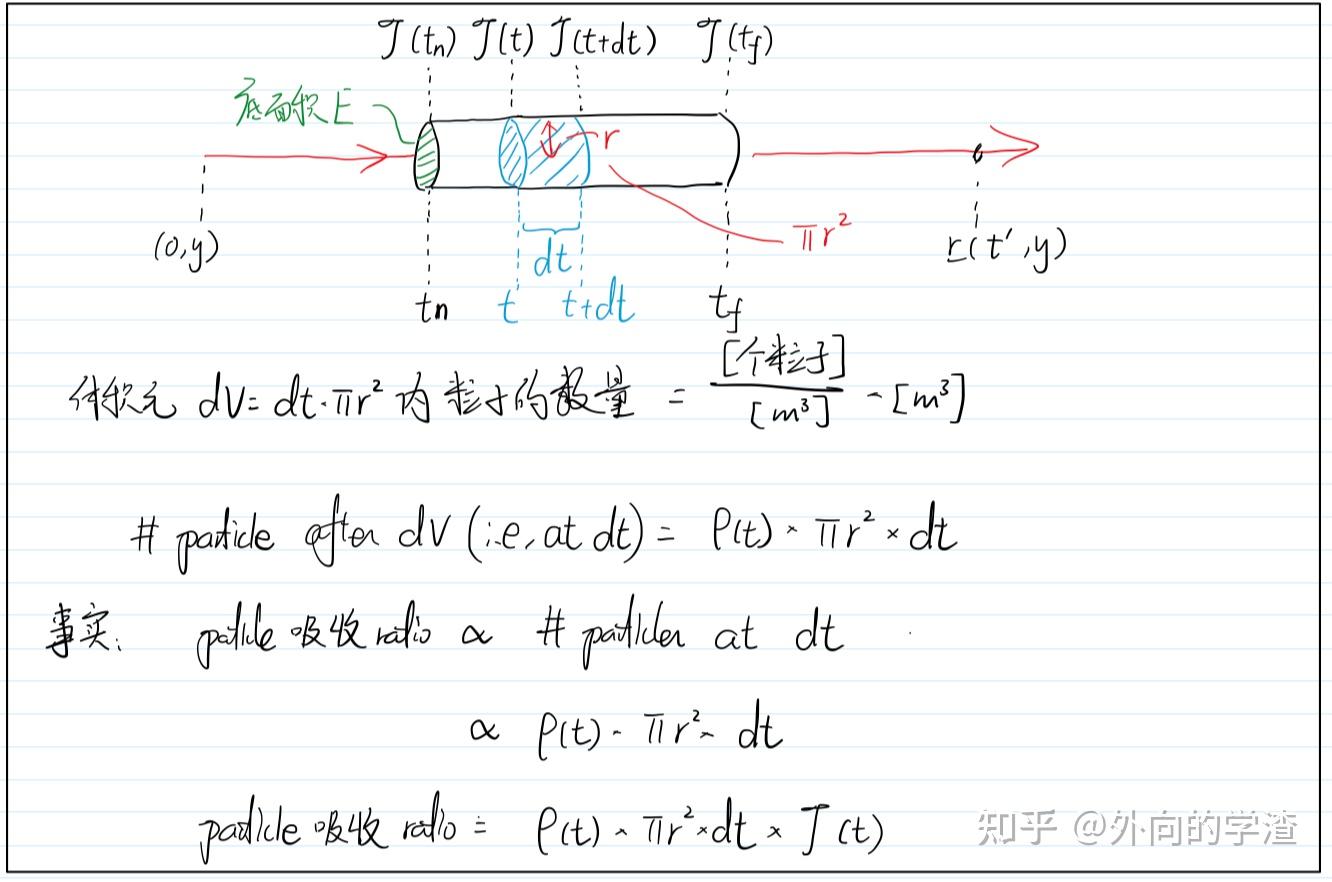 𝒯(tn) 𝒯(t) 𝒯(t+dt) 𝒯(tf)
底面积 E
r
πr²
(0,y)
r(t',y)
dt
tn t t+dt tf
体积元 dV = dt·πr² 内 粒子的数量 = [个粒子]/[m³] · [m³]
# particle after dV (i.e, at dt) = ρ(t) × πr² × dt
事实: particle 吸收 ratio ∝ # particles at dt
∝ ρ(t) · πr² · dt
particle 吸收 ratio = ρ(t) × πr² × dt × 𝒯(t)
知乎 @外向的学渣